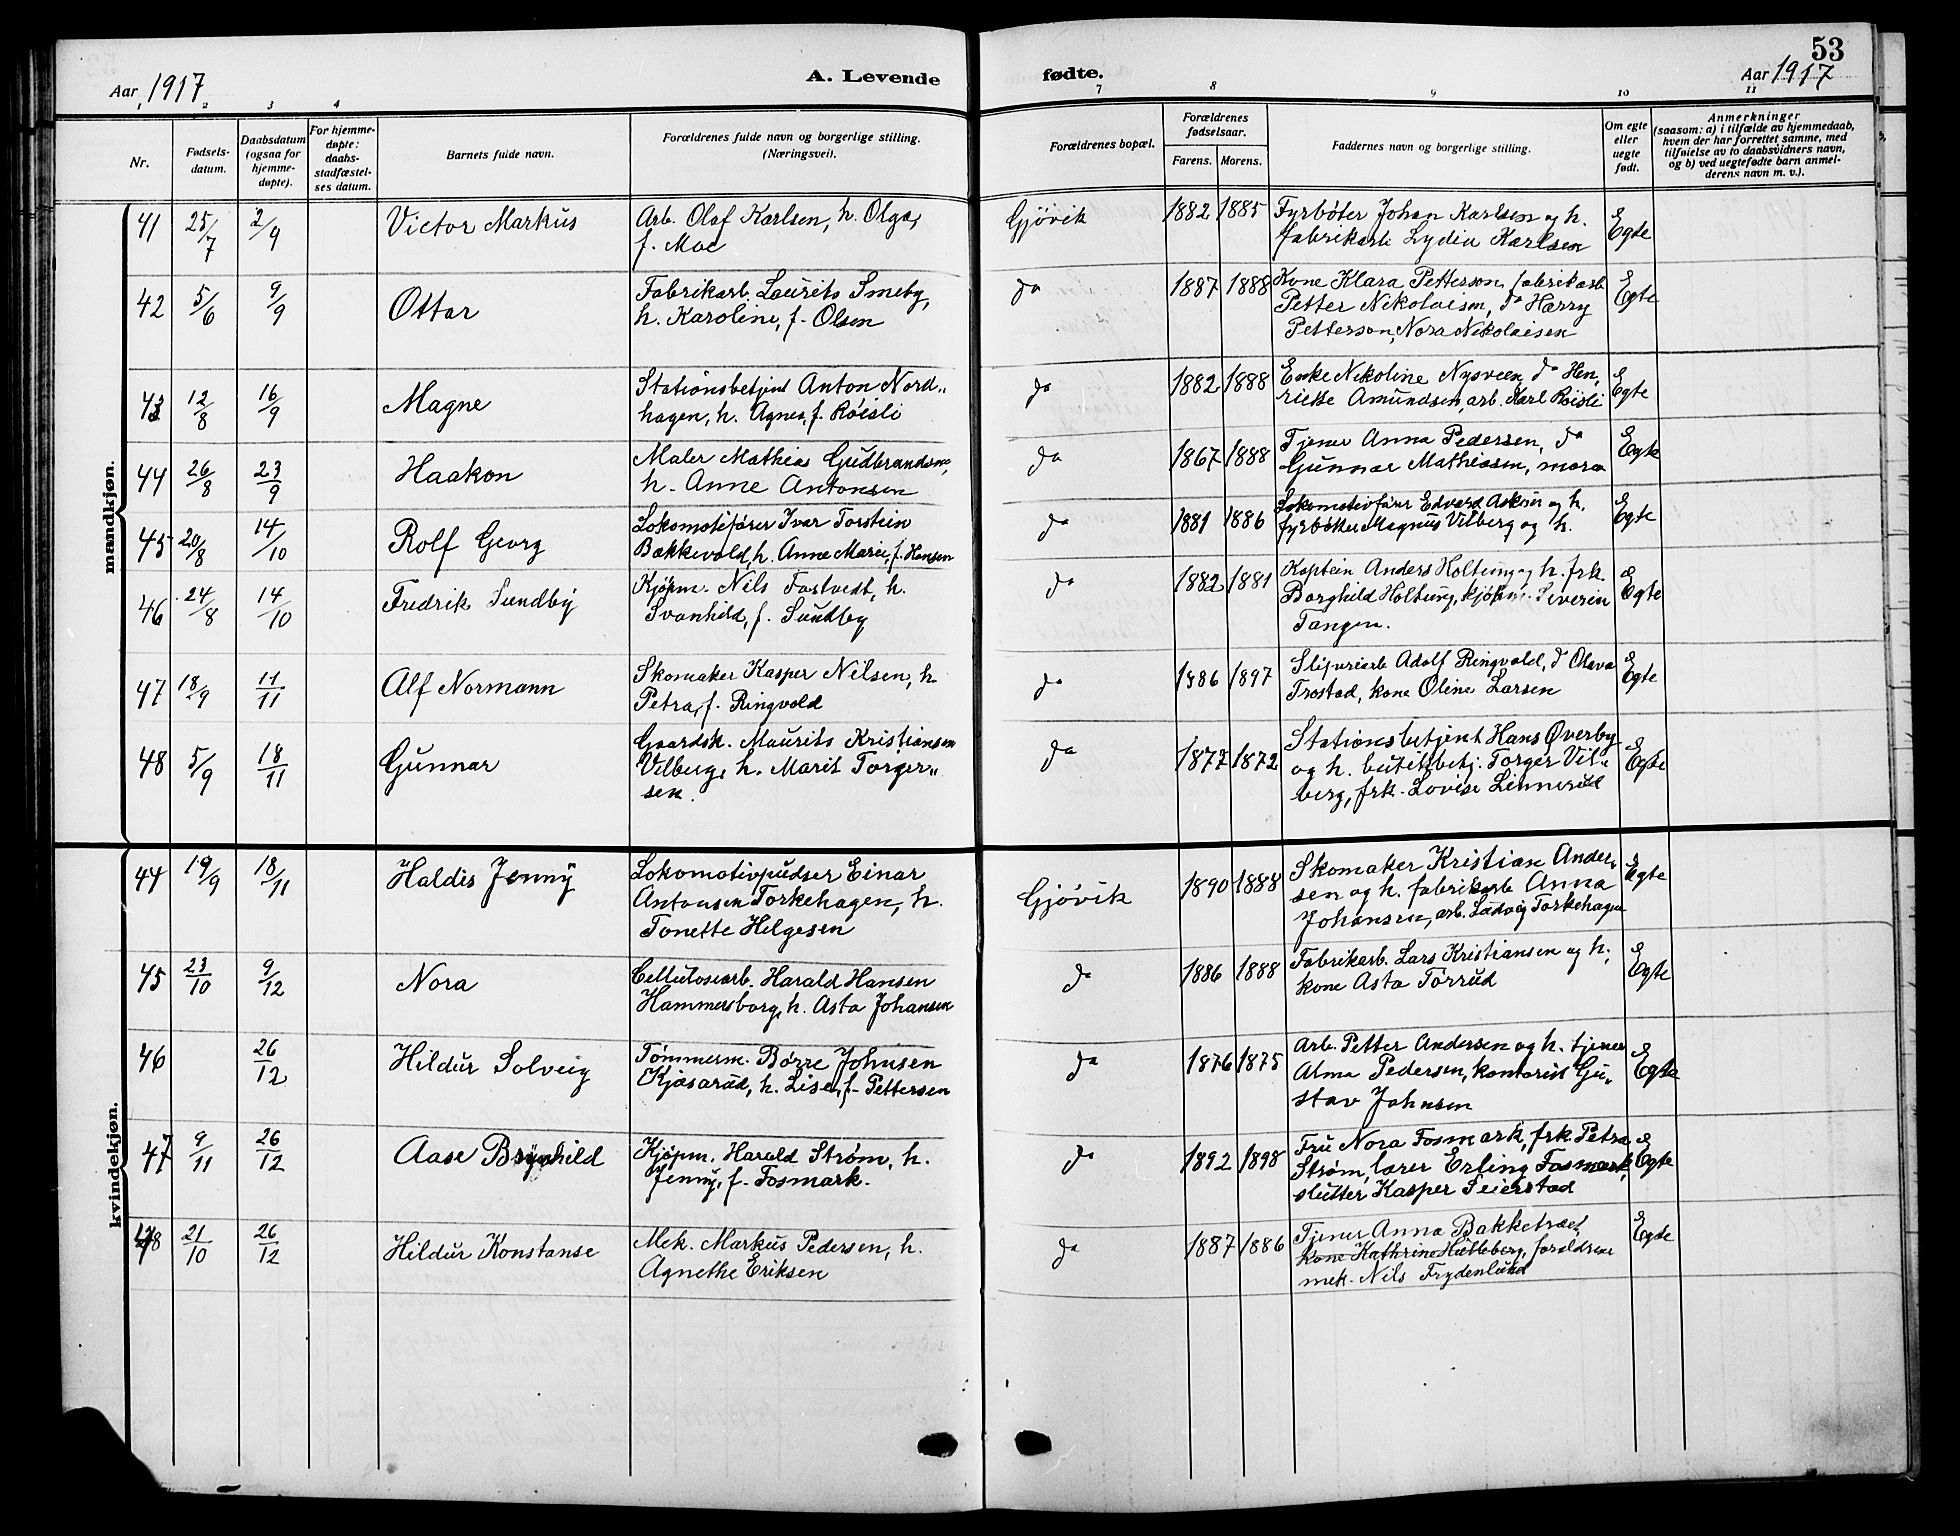 53
Aar 1917
A. Levende fødte.
Aar 1917
1 2 3 4 7 8 9 10 11
Nr.
Fødsels-
datum.
Daabsdatum
(ogsaa for
hjemme-
døpte).
For hjemme-
døpte:
daabs-
stadfæstel-
ses datum.
Barnets fulde navn.
Forældrenes fulde navn og borgerlige stilling.
(Næringsvei).
Forældrenes bopæl.
Forældrenes
fødselsaar.
Farens. Morens.
Faddernes navn og borgerlige stilling.
Om egte
eller
uegte
født.
Anmerkninger
(saasom: a) i tilfælde av hjemmedaab,
hvem der har forrettet samme, med
tilføielse av to daabsvidners navn,
og b) ved uegtefødte barn anmel-
derens navn m. v.).
mandkjøn.
41 25/7 2/9 Victor Markus Arb. Olaf Karlsen, h. Olga, Gjøvik 1882 1885 Fyrbøter Johan Karlsen og h. Egte
f. Moe fabrikarb Lydia Karlsen
42 5/6 9/9 Ottar Fabrikarb. Laurits Smeby, do 1887 1888 Kone Klara Petterson, fabrikarb Egte
h. Karoline, f. Olsen Petter Nikolaisen, do Harry
Petterson, Nora Nikolaisen
43 12/8 16/9 Magne Stationsbetjent Anton Nord„ do 1882 1888 Enke Nikoline Nysveen, do Hen, Egte
hagen, h. Agnes, f. Røisli rikke Amundsen, arb. Karl Røisli
44 26/8 23/9 Haakon Maler Mathias Gudbrandsen, do 1867 1888 Tjener Anna Pedersen, do Egte
h. Anne Antonsen Gunnar Mathiasen, mora
45 20/8 14/10 Rolf Georg Lokomotifører Ivar Torstein do 1881 1886 Lokomotivfører Edvard og h. Egte
Bakkevold, h. Anne Marie, f. Hansen fyrbøter Magnus Vilberg og h.
46 24/8 14/10 Fredrik Sundby Kjøpm. Nils Fostvedt, h. do 1882 1881 Kaptein Anders Holtung og h. frk. Egte
Svanhild, f. Sundby Borghild Holtung, kjøpm. Severin
Tangen.
47 18/9 11/11 Alf Normann Skomaker Kasper Nilsen, h. do 1886 1897 Sliperiarb Adolf Ringvold, do Olava Egte
Petra, f. Ringvold Trostad, kone Oline Larsen
48 5/9 18/11 Gunnar Gaardsk. Maurits Kristiansen do 1877 1872 Stationsbetjent Hans Øverby Egte
Vilberg, h. Marit Torger„ og h. butikbetj. Torger Vil„
sen. berg, frk. Lovise Linnerud
kvindekjøn.
44 19/9 18/11 Haldis Jenny Lokomotivpudser Einar Gjøvik 1890 1888 Skomaker Kristian Ander, Egte
Antonsen Torkehagen, h. sen og h. fabrikarb Anna
Tonette Helgesen Johansen, arb. Ludvig Torkehagen
45 23/10 9/12 Nora Cellulosearb. Harald Hansen do 1886 1888 Fabrikarb. Lars Kristiansen og h. Egte
Hammersborg, h. Asta Johansen kone Asta Torrud
46 26/12 Hildur Solveig Tømmerm. Børre Johnsen do 1876 1875 Arb. Petter Andersen og h. tjener Egte
Kjøsarud, h. Lise, f. Pettersen Alma Pedersen, kontorist Gu„
stav Johnsen
47 9/11 26/12 Aase Brynhild Kjøpm. Harald Strøm, h. do 1892 1898 Fru Nora Fosmark, frk Petra Egte
Jenny, f. Fosmark. Strøm, lærer Erling Fosmark,
slutter Kasper Seierstad
48 21/10 26/12 Hildur Konstanse Mek. Markus Pedersen, h. do 1887 1886 Tjener Anna Bakketræet, Egte
Agnethe Eriksen kone Kathrine Hulleberg, forældrene
mek. Nils Frydenlund